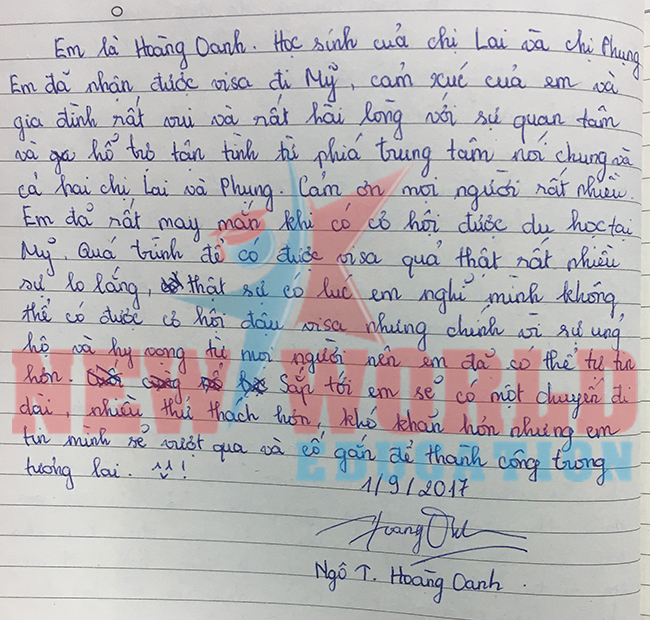 Em là Hoàng Oanh. Học sinh cuả chị Lai và chị Phụng
Em đã nhận được visa đi Mỹ, cảm xúc cuả em và
gia đình rất vui và rất hài lòng với sự quan tâm
và hổ trợ tận tình từ phiá trung tâm nói chung và
cả hai chị Lai và Phụng. Cảm ơn mọi người rất nhiều.
Em đả rất may mắn khi có cơ hội được du học tại
Mỹ. Quá trình để có được visa quả thật rất nhiều
sự lo lắng, thật sự có lúc em nghĩ mình không
thể có được cơ hội đậu visa nhưng chính vì sự ủng
hộ và hy vọng từ mọi người nên em đã có thể tự tin
hơn. Sắp tới em sẽ có một chuyến đi
dài, nhiều thử thách hơn, khó khăn hơn nhưng em
tin mình sẽ vượt qua và cố gắn để thành công trong
tương lai. ^^!
1/9/2017
Hoang
Ngô T. Hoàng Oanh.
NEW WORLD
EDUCATION